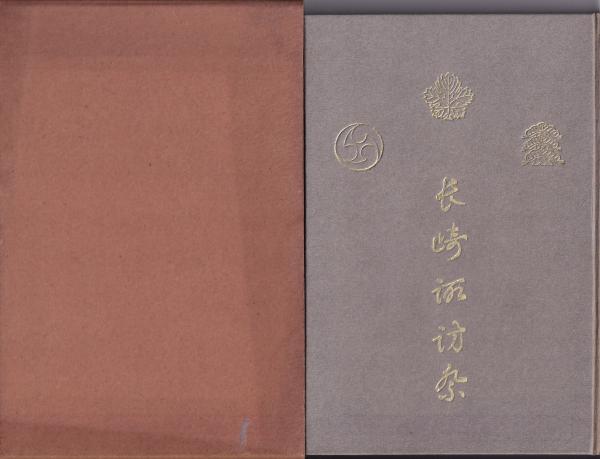 長崎諏訪祭